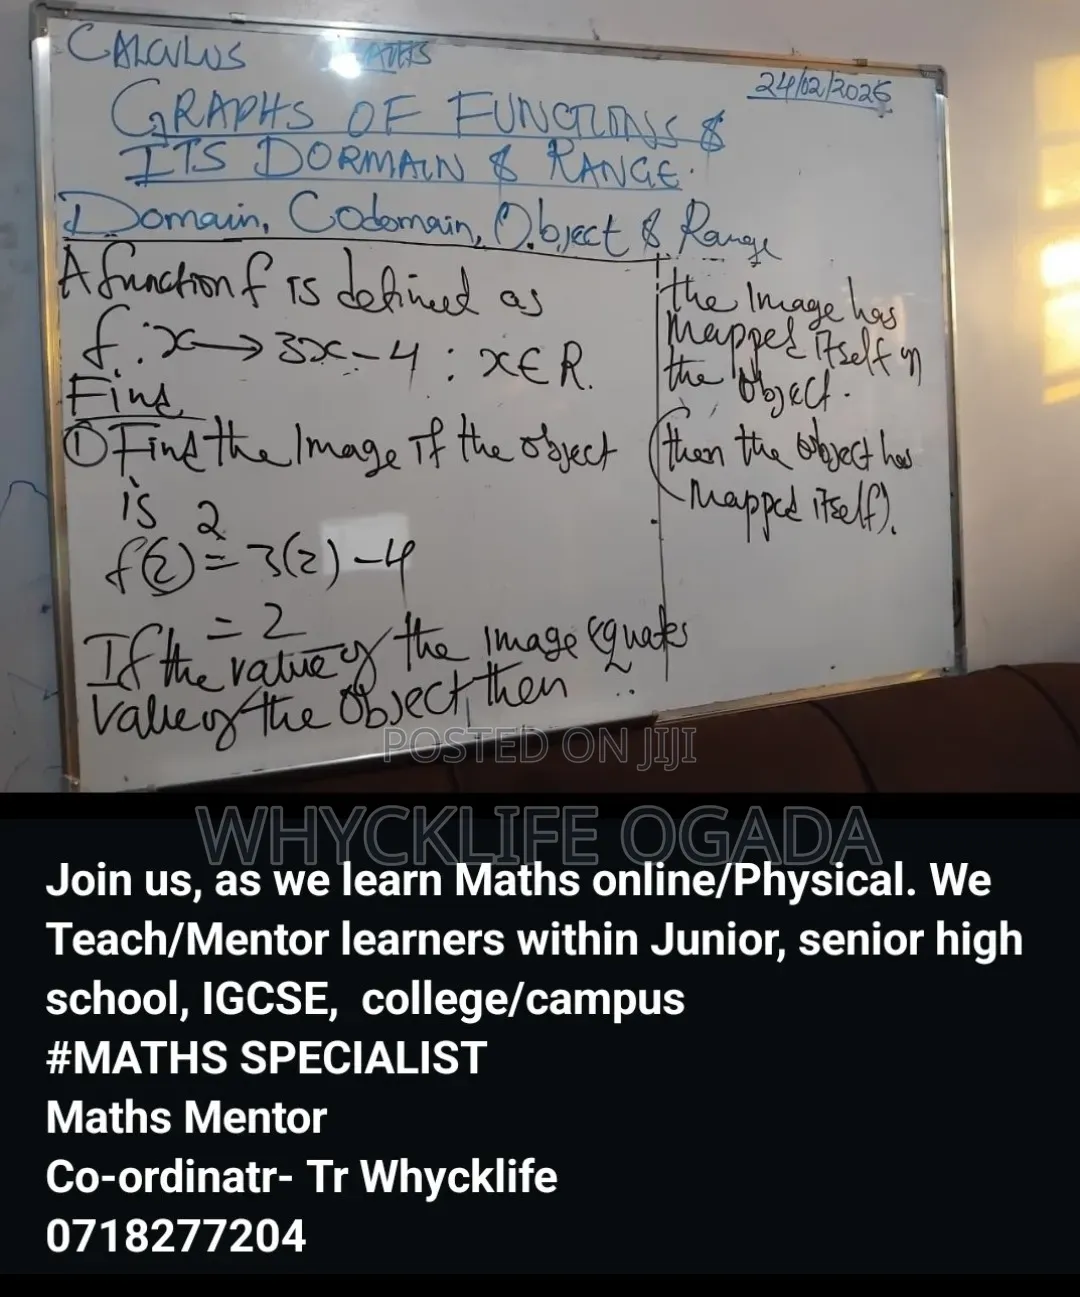 CALCULUS MATHS
24/02/2025
GRAPHS OF FUNCTIONS &
ITS DORMAIN & RANGE.
Domain, Codomain, Object & Range
A function f is defined as
f : x → 3x - 4 : x ∈ R.
Find
① Find the Image if the object
is 2
f(2) = 3(2) - 4
= 2
If the value of the image equates
value of the object, then
the Image has
mapped itself on
the object.
(then the object has
mapped itself).
POSTED ON JIJI
WHYCKLIFE OGADA
Join us, as we learn Maths online/Physical. We
Teach/Mentor learners within Junior, senior high
school, IGCSE, college/campus
#MATHS SPECIALIST
Maths Mentor
Co-ordinatr- Tr Whycklife
0718277204